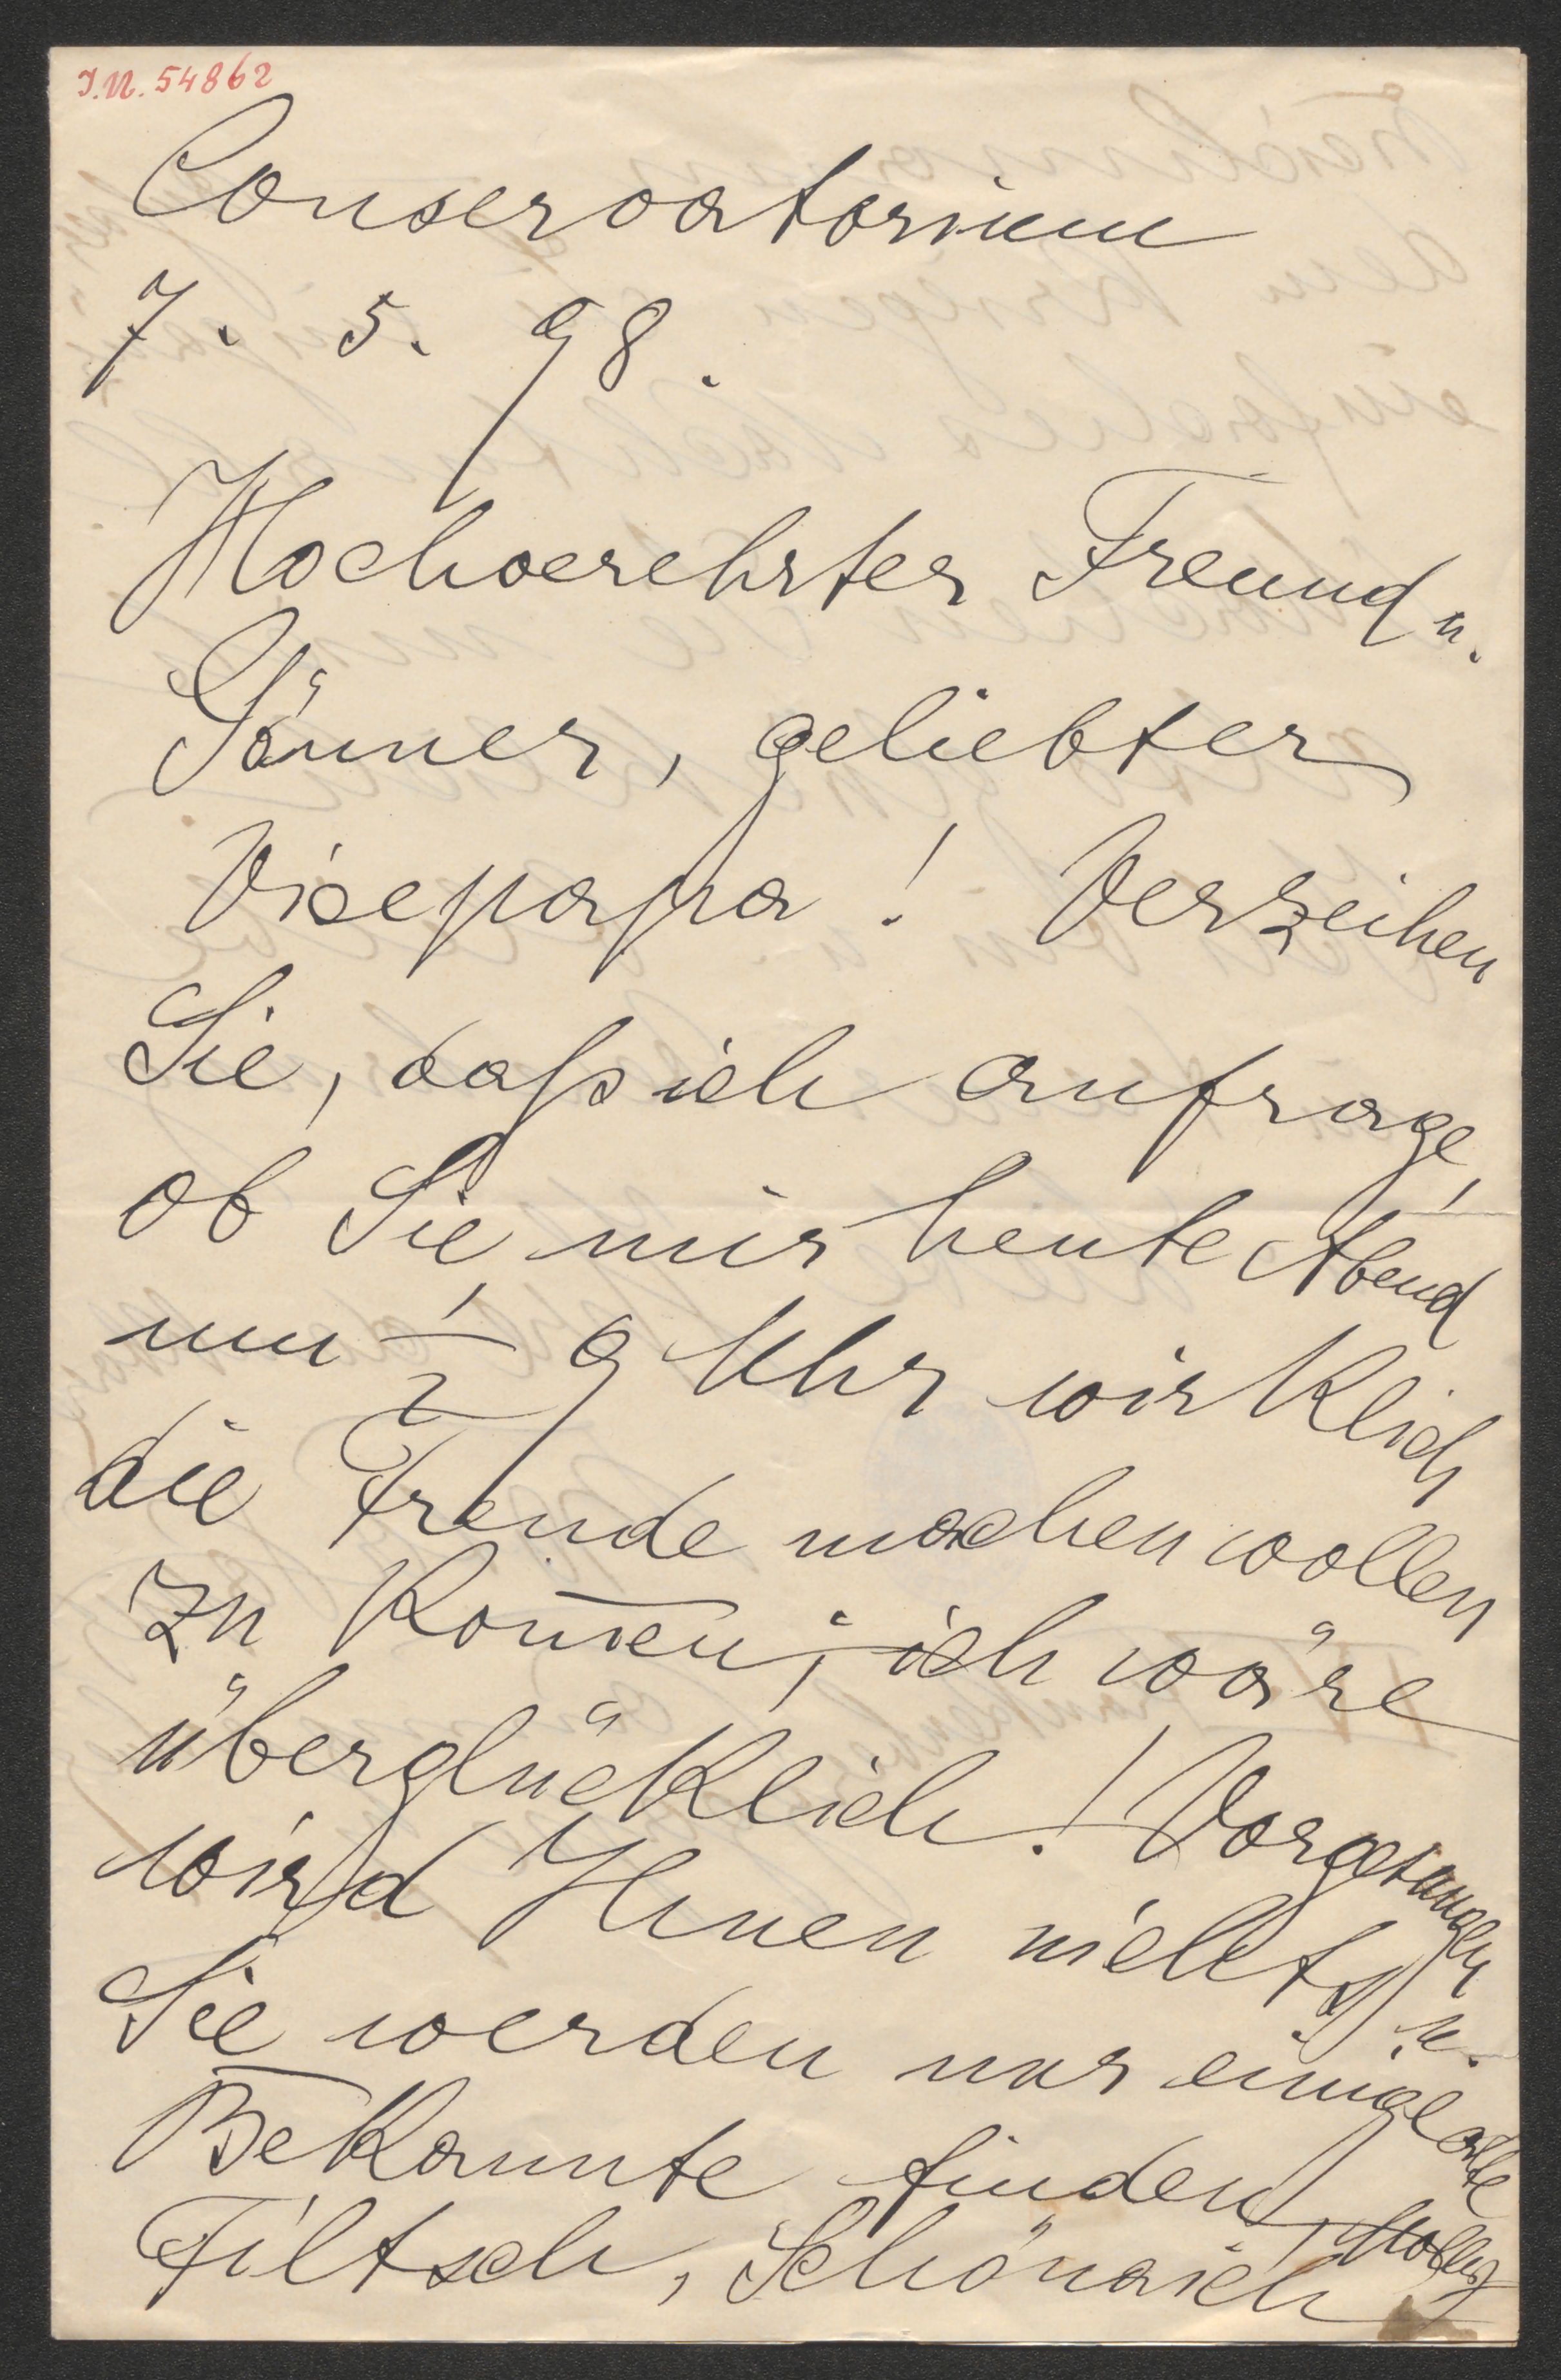 I.N. 54862
Conservatorium
7. 5. 98.
Hochverehrter Freund u.
Gönner, geliebter
Vicepapa! Verzeihen
Sie, daß ich anfrage,
ob Sie mir heute Abend
um ½ 9 Uhr wirklich
die Freude machen wollen
zu kom̅en; ich wäre
überglücklich! Vorgesungen
wird Ihnen nichts u.
Sie werden nur einige alte
Bekannte finden,
Filtsch, Schönaich